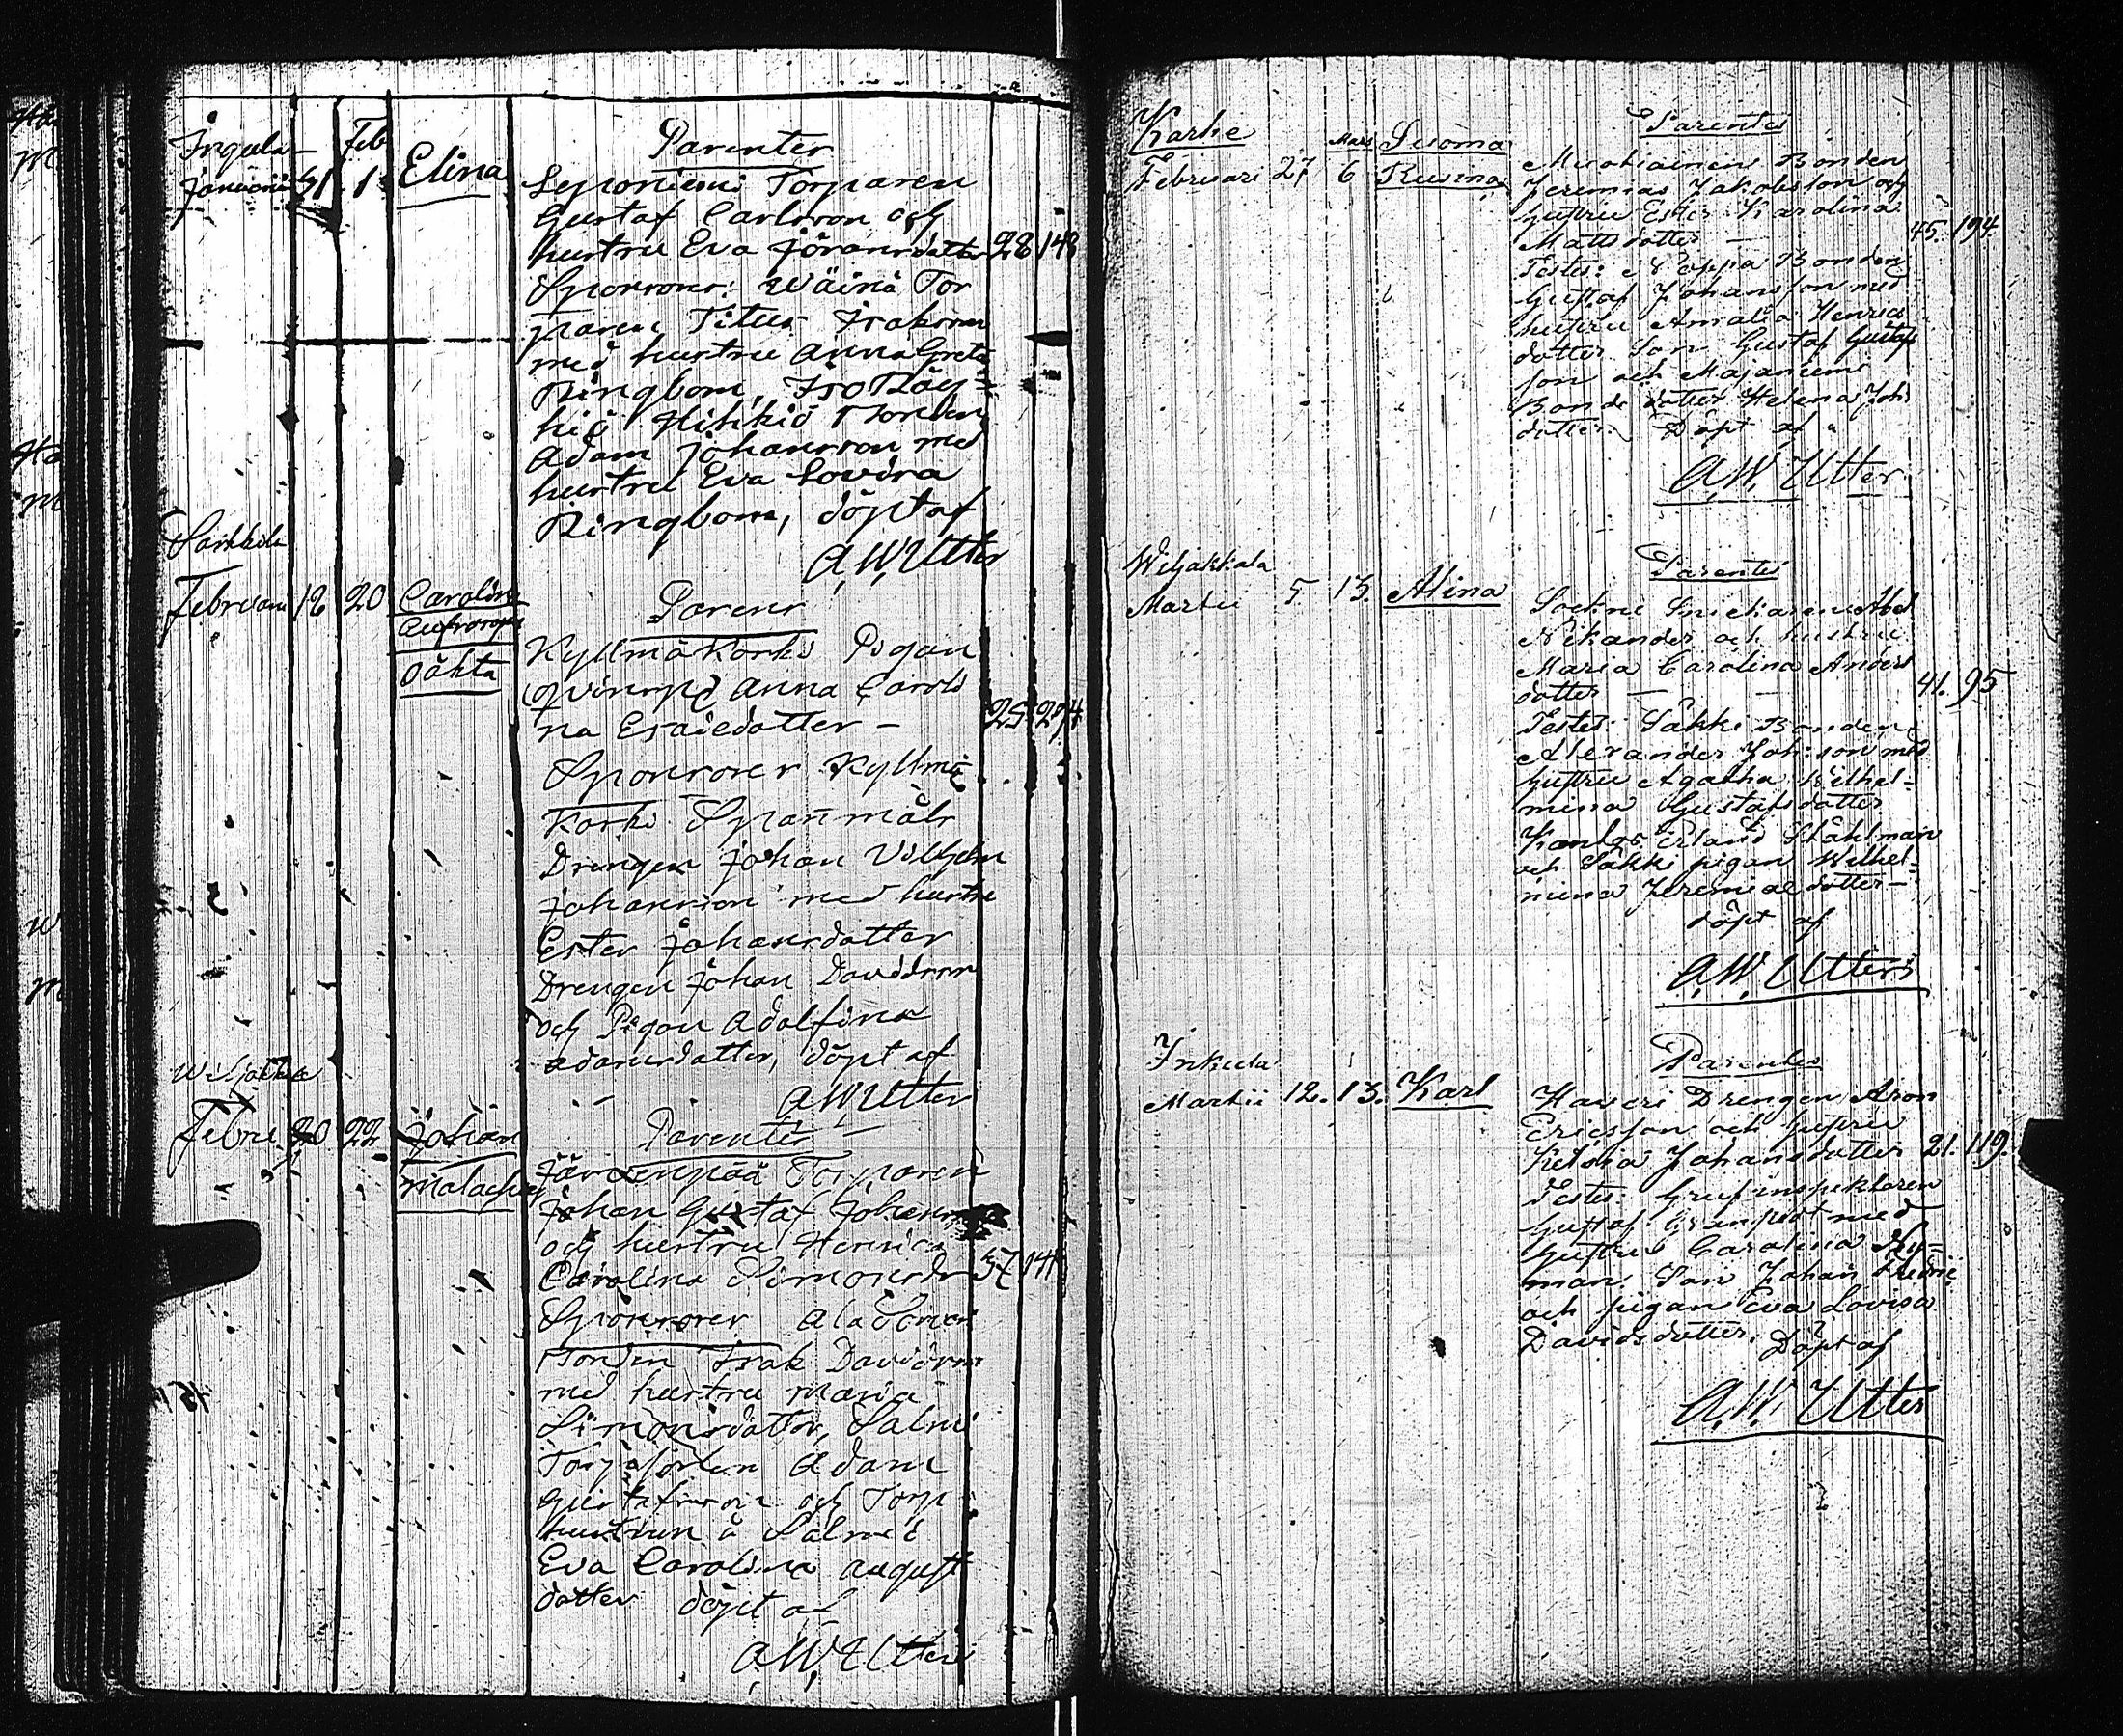 Feb
Inqula
Januarii 31 1 Elina
Parenter
Torparen
Gustaf Carlsson och
hustru Eva Göransdotter 28 148
Sponsorer: Wäinä Tor
paren Titus Isaksson
med hustru Anna Greta
Ringbom, Iso Röy
hiö Hihkiö Bonden
Adam Johansson med
hustru Eva Lovisa
Ringbom, döpt af
A. W. Utter
Sarkkila
Februari 12 20 Carolina
Eufrosyne
oäkta
Parens
Kyllmäkorki Pigan
qvinsp. Anna Caroli
na Esaiedotter – 25 294
Sponsorer Kyllmä
Korki Spanmåls
Drengen Johan Vilhelm
Johansson med hustru
Ester Johansdotter
Drengen Johan Davidsson
och Pigan Adolfina
Adamsdotter, döpt af
A W Utter
Febru 20 22 Johan
21
Malachias
Parenter
Järvenpää Torparen
Johan Gustaf Johansson
och hustru Henrica
Carolina Simonsdr 37 141
Sponsorer
Bonden Isak Davidsson
med hustru Maria
Simonsdotter, Salmi
Adam
Gustafsson och Torp
hustrun å Salmi
Eva Carolina August
dotter döpt af
A. W. Utter
Karhe
Februari 27 Mars 6
Susanna
Parentes
Bonden
Jeremias Jakobsson och
hustru Ester Karolina
Mattsdotter — 45. 194
Testes: Noppa Bonden
Gustaf Johansson med
hustru Amalia Henrics
dotter Son Gustaf Gustafs
son och Majaniemi
Bonde dotter Helena Joh:
dotter. Döpt af
A. W. Utter
Wiljakkala
Martii 5. 13. Alina
Parentes
Sockne Snickaren Abel
Nikander och hustru
Maria Carolina Anders
dotter — 41. 95
Testes: Säkki Bonden
Alexander Joh:son med
hustru Agatha Wilhel-
mina Gustafsdotter
Kantor Erland Ståhlman
och Säkki pigan Wilhel-
mina Jeremiaedotter —
döpt af
A. W. Utter
Inkula
Martii 12. 13. Karl
Parentes
Haveri Drengen Aron
Ericsson och hustru
Johansdotter 21. 119.
Testes: Grufinspektoren
Gustaf Granqvist med
hustru Carolina Ny-
man. Son Johan
och pigan Eva Lovisa
Davidsdotter. Döpt af
A. W. Utter